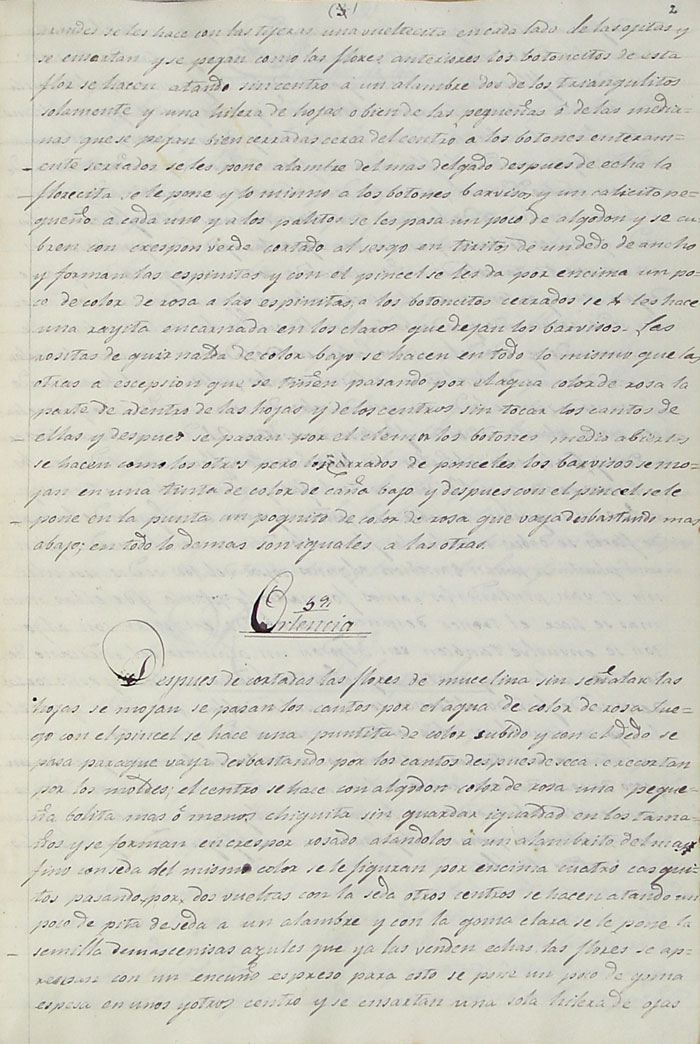 (3) 2
grandes se les hace con las tijeras una vueltecita en cada lado de las ojitas y
se ensartan y se pegan como las flores anteriores los botoncitos de esta
flor se hacen atando sin centro á un alambre dos de los triangulitos
solamente y una hilera de hojas o bien de las pequeñas ó de las media-
nas que se pegan bien cerradas cerca del centro a los botones enteram-
ente serrados se les pone alambre del mas delgado despues de echa la
florecita se le pone y lo mismo a los botones barvisos y un calicito pe-
queño a cada uno y a los palitos se les pasa un poco de algodon y se cu-
bren con crespon verde cortado al sesgo en tiritas de un dedo de ancho
y forman las espinitas y con el pincel se les da por encima un po-
co de color de rosa a las espinitas, a los botoncitos cerrados se les hace
una rayita encarnada en los claros que dejan los barvisos. Las
rositas de guirnalda de color bajo se hacen en todo lo mismo que las
otras a escepsion que se tiñen pasando por el agua color de rosa la
parte de adentro de las hojas y de los centros sin tocar los cantos de
ellas y despues se pasan por el los botones medio abiertos
se hacen como los otros pero los cerrados de pinceles los barvisos se mo-
jan en una tinta de color de caña bajo y despues con el pincel se le
pone en la punta un poquito de color de rosa que vaya desbastando mas
abajo; en todo lo demas son iguales a las otras.
5ª
Ortencia
Despues de cortadas las flores de mucelina sin señalar las
hojas se mojan se pasan los cantos por el agua de color de rosa lue-
go con el pincel se hace una puntita de color subido y con el dedo se
pasa para que vaya desbastando por los cantos despues de seca se recortan
por los moldes; el centro se hace con algodon color de rosa una peque-
ña bolita mas ó menos chiquita sin guardar igualdad en los tama-
ños y se forman en crespon rosado atandolos á un alambrito del mas
fino con seda del mismo color se le figuran por encima cuatro casqui-
tos pasando por dos vueltas con la seda otros centros se hacen atando un
poco de pita de seda a un alambre y con la goma clara se le pone la
semilla de mas cenisas azules que ya las venden echas, las flores se ap-
rensan con un encuño espreso para esto se pone un poco de goma
espesa en unos y otros centro y se ensartan una sola hilera de ojas